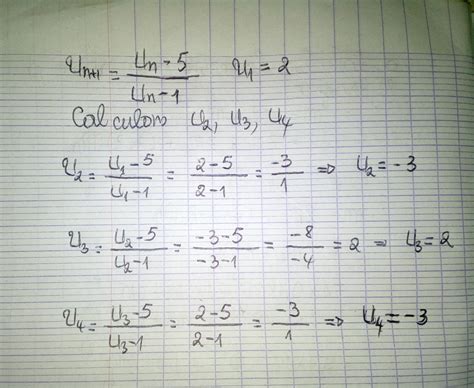 U_{n+1} = \frac{U_n - 5}{U_n - 1}   U_1 = 2
Calculons U_2, U_3, U_4
U_2 = \frac{U_1 - 5}{U_1 - 1} = \frac{2 - 5}{2 - 1} = \frac{-3}{1} ⇒ U_2 = -3
U_3 = \frac{U_2 - 5}{U_2 - 1} = \frac{-3 - 5}{-3 - 1} = \frac{-8}{-4} = 2 ⇒ U_3 = 2
U_4 = \frac{U_3 - 5}{U_3 - 1} = \frac{2 - 5}{2 - 1} = \frac{-3}{1} ⇒ U_4 = -3